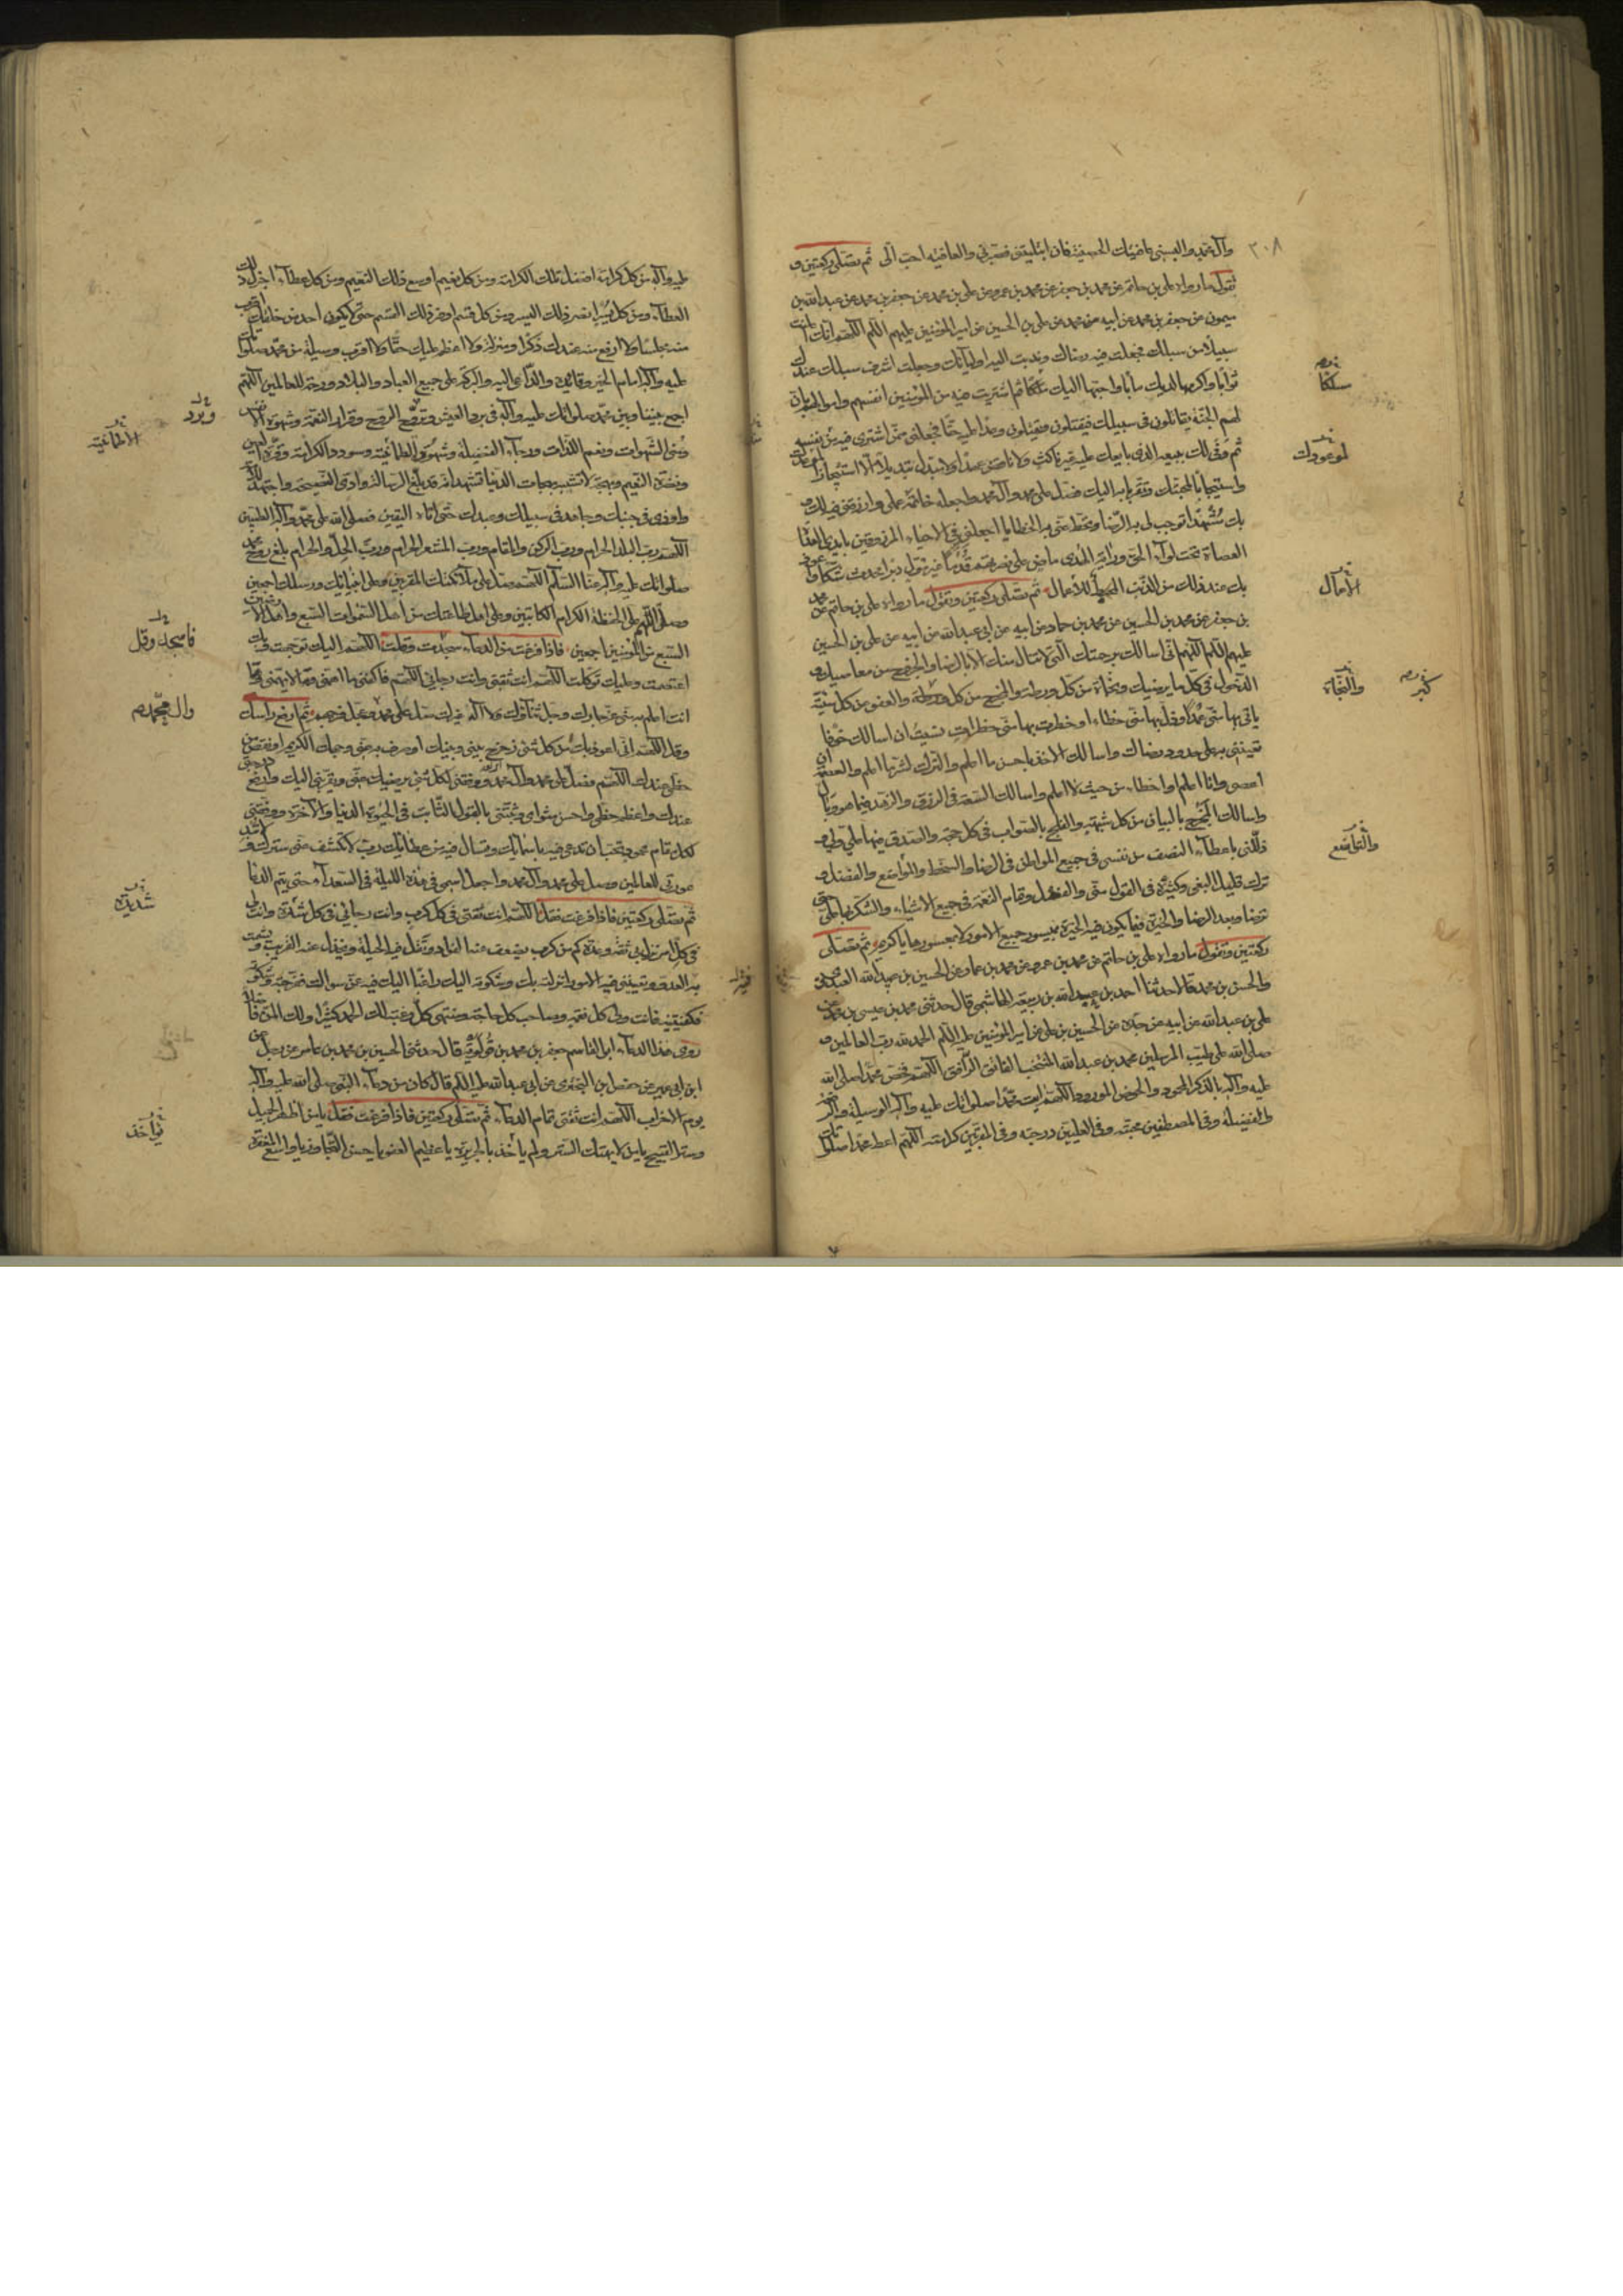 ٣٠٨
وآل محمد والبسني عافيتك الحصينة فان ابتليتني فصبرني والعافية احب الّى ثم تصلّى ركعتين و
تقول ما رواه على بن حاتم عن محمد بن جعفر عن محمد بن عمرو عن على بن محمد عن جعفر بن محمد عن عبدالله بن
ميمون عن جعفر بن محمد عن ابيه عن محمد عن على بن الحسين عن امير المؤمنين عليهم السلم اللهم انك اعلنت
سبيلاً من سبلك فجعلت فيه رضاك وندبت اليه اوليآئك وجعلت اشرف سبلك عندك
ثوابًا واكرمها لديك مأبا واحبها اليك مسلكًا ثم اشتريت فيه من المؤمنين انفسهم واموالهم بان
لهم الجنة يقاتلون فى سبيلك فيقتلون ويقتلون وعدًا عليه حقًا فاجعلنى ممن اشترى فيه منك نفسه
ثم وفى لك ببيعه الذى بايعك عليه غير ناكث ولا ناقض عهدًا ولا مبدل تبديلاً الا استنجازًا لموعدك
واستيجابًا لمحبتك وتقربا به اليك فصل على محمد وآل محمد واجعله خاتمة عملى وارزقنى فيه لك و
بك مشهدًا توجب لى به الرضا وتحط عنى به الخطايا اجعلنى فى الاحياء المرزوقين بايدى العداة
العصاة تحت لوآء الحق وراية الهدى ماض على نصرتهم قدمًا غير مول دبرا ولا محدث شكا واعوذ
بك عند ذلك من الذنب المحبط للاعمال ثم تصلى ركعتين وتقول ما رواه على بن حاتم عن محمد
بن جعفر عن محمد بن الحسين عن محمد بن حماد عن ابيه عن ابى عبدالله عن ابيه عن على بن الحسين
عليهم السلم اللهم انى اسالك برحمتك التى لا تنال منك الا بالرضا والخروج من معاصيك و
الدخول فى كل ما يرضيك ونجاة من كل ورطة والمخرج من كل كبيرة والعفو عن كل سيئة
ياتى بها منى عمد او زل بها منى خطاء او خطرت بها منى خطرات نسيت ان اسالك خوفا
تعيننى به على حدود رضاك واسالك الاخذ باحسن ما اعلم والترك لشر ما اعلم والعصمة ان
اعصى وانا اعلم او اخطاء من حيث لا اعلم واسالك السعة فى الرزق والزهد فيما هو وبال
واسالك المخرج بالبيان من كل شبهة والفلج بالصواب فى كل حجة والصدق فيما على ولى و
ذللنى باعطآء النصف من نفسى فى جميع المواطن فى الرضا والسخط والتواضع والفضل و
ترك قليل البغى وكثيره فى القول منى والفعل وتمام النعمة فى جميع الاشياء والشكر بها على حتى
ترضا وبعد الرضا والخيرة فيما يكون فيه الخيرة بميسور جميع الامور لا بمعسورها يا كريم ثم تصلى
ركعتين وتقول ما رواه على بن حاتم عن محمد بن عمرو عن محمد بن عمار عن الحسين بن عبدالله العبدى
والحسن بن محمد قالا حدثنا احمد بن عبيدالله بن ربيعة الهاشمى قال حدثنى محمد بن عيسى بن محمد عن
على بن عبدالله عن ابيه عن جده عن الحسين بن على عن امير المؤمنين عليه السلم الحمد لله رب العالمين و
صلى الله على طيب المرسلين محمد بن عبدالله المنتخب الفاتق الراتق اللهم فخص محمدا صلى الله
عليه وآله بالذكر المحمود والحوض المورود اللهم ايت محمدا صلواتك عليه وآله الوسيلة والرفعة
والفضيلة وفى المصطفين محبته وفى العليين درجته وفى المقربين كرامته اللهم اعط محمدا صلواتك
مسلكًا
لموعودك
الاعمال
كبيرة
والنجاة
والتواضع
عليه وآله من كل كرامة افضل تلك الكرامة ومن كل نعيم اوسع ذلك النعيم ومن كل عطآء اجزل ذلك
العطآء ومن كل يسر انضر ذلك اليسر ومن كل قسم اوفر ذلك القسم حتى لا يكون احد من خلقك اقرب
منه مجلسًا ولا ارفع منه عندك ذكرًا ومنزلة ولا اعظم عليك حقًا ولا اقرب وسيلة من محمد صلواتك
عليه وآله امام الخير وقائده والداعى اليه والبركة على جميع العباد والبلاد ورحمة للعالمين اللهم
اجمع بيننا وبين محمد صلواتك عليه وآله فى برد العيش وتروّح الروح وقرار النعمة وشهوة الانفس
ومنى الشهوات ونعيم اللذات ورجآء الفضيلة وشهود الطمانينة وسودد الكرامة وقرة العين
ونضرة النعيم وبهجة لا تشبه بهجات الدنيا نشهد انه قد بلغ الرسالة وادى النصيحة واجتهد للامة
واوذى فى جنبك وجاهد فى سبيلك وعبدك حتى اتاه اليقين فصلى الله على محمد وآله الطيبين
اللهم رب البلد الحرام ورب الركن والمقام ورب المشعر الحرام ورب الحل والحرام بلغ روح محمد
صلواتك عليه وآله عنا السلم اللهم صل على ملآئكتك المقربين وعلى انبيائك ورسلك اجمعين
وصل اللهم على الحفظة الكرام الكاتبين وعلى اهل طاعتك من اهل السموات السبع واهل الارضين
السبع من المؤمنين اجمعين فاذا فرغت من الدعآء سجدت وقلت اللهم اليك توجهت وبك
اعتصمت وعليك توكلت اللهم انت ثقتى وانت رجائى اللهم فاكفنى ما اهمنى وما لا يهمنى وما
انت اعلم به منى عز جارك وجل ثناؤك ولا اله غيرك صل على محمد وعجل فرجهم ثم ارفع راسك
وقل اللهم انى اعوذ بك من كل شئ زحزح بينى وبينك او صرف به عنى وجهك الكريم او نقص من
حظى عندك اللهم فصل على محمد وآل محمد ووفقنى لكل شئ يرضيك عنى ويقربنى اليك وارفع درجتى
عندك واعظم حظى واحسن مثواى وثبتنى بالقول الثابت فى الحيوة الدنيا والآخرة ووفقنى
لكل مقام محمود تحب ان تدعى فيه باسمائك وتسال فيه من عطائك رب لا تكشف عنى سترك ولا تبد
عورتى للعالمين وصل على محمد وآل محمد واجعل اسمى فى هذه الليلة فى السعدآء حتى يتم الدعآء
ثم تصلى ركعتين فاذا فرغت فقل اللهم انت ثقتى فى كل كرب وانت رجائى فى كل شدة وانت لى
فى كل امر نزل بى ثقة وعدة كم من كرب يضعف عنه الفؤاد وتقل فيه الحيلة ويخذل عنه القريب ويشمت
به العدو وتعيينى فيه الامور انزلته بك وشكوته اليك راغبًا اليك فيه عمن سواك ففرجته وكشفته
وكفيتنيه فانت ولى كل نعمة وصاحب كل حاجة ومنتهى كل رغبة لك الحمد كثيرًا ولك المن فاضلا
روى هذا الدعآء ابو القاسم جعفر بن محمد بن قولويه قال حدثنى الحسين بن محمد بن عامر عن رجل عن
ابن ابى عمير عن حفص بن البخترى عن ابى عبدالله عليه السلم قال كان من دعآء النبى صلى الله عليه وآله
يوم الاحزاب اللهم انت ثقتى تمام الدعآء ثم تصلى ركعتين فاذا فرغت فقل يا من اظهر الجميل
وستر القبيح يا من لا يهتك الستر ولم يأخذ بالجريرة يا عظيم العفو يا حسن التجاوز يا واسع المغفرة
وبرد
الطمانينة
فاسجد وقل
وال محمد
شديدة
يؤاخذ